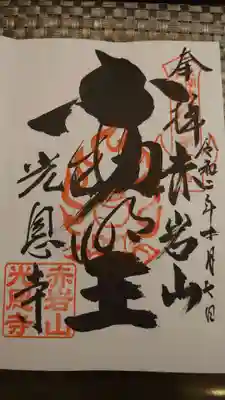 奉拝
赤岩山
令和二年十月六日
不動明王
光恩寺
赤岩山
光恩寺